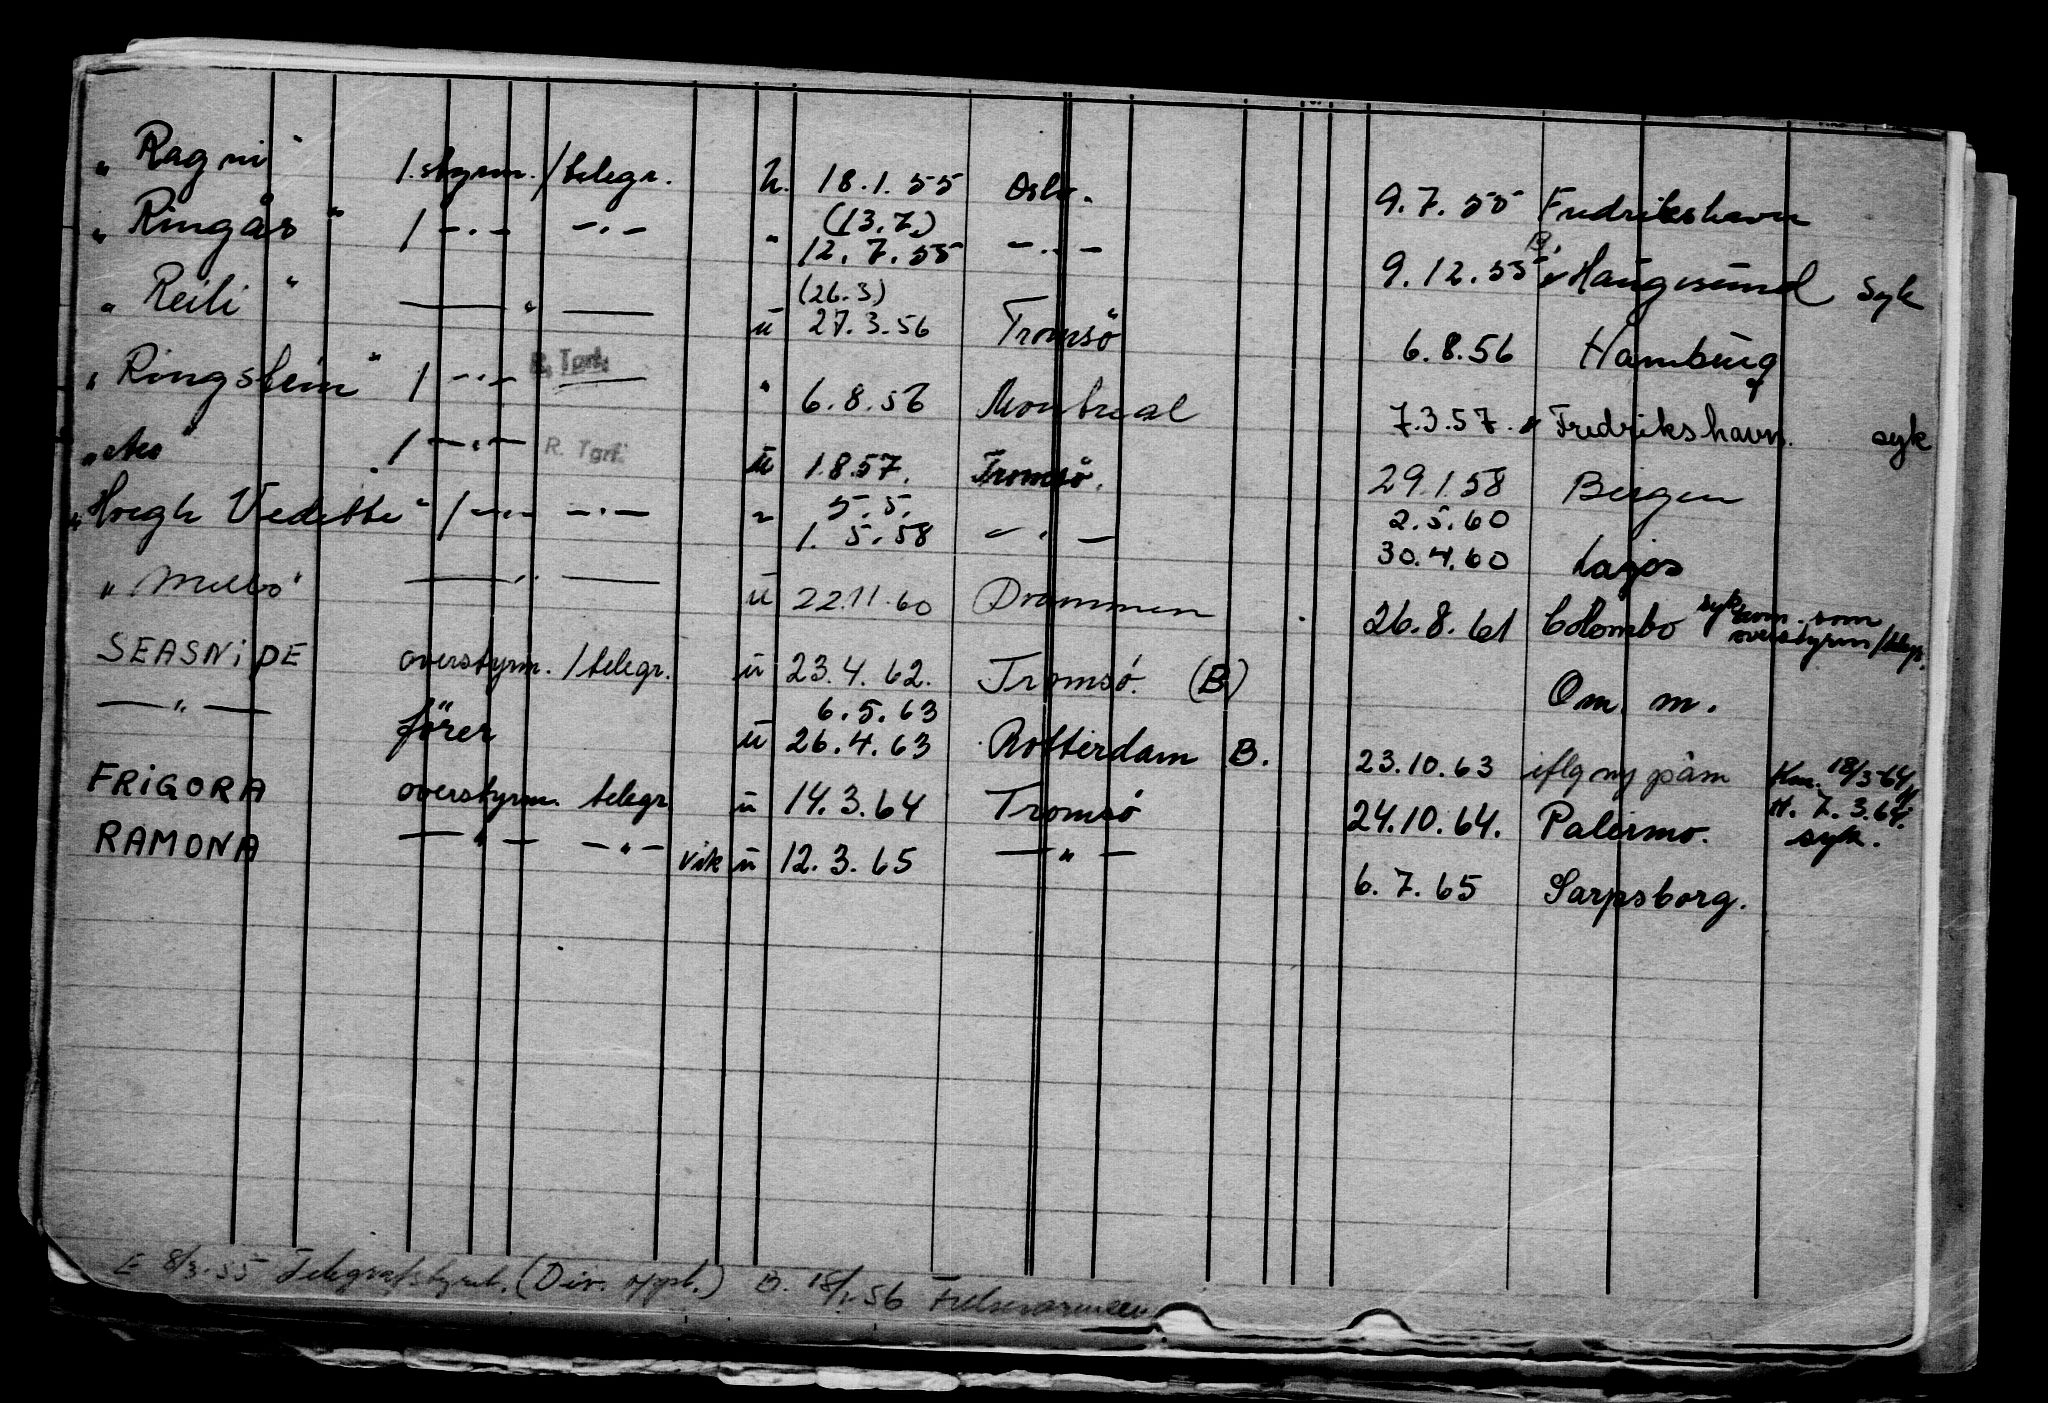 „Ragni" 1.styrm./telegr. h. 18.1.55 Oslo. 9.7.55 Fredrikshavn
(13.7.)
„Ringås" 1 -.- -.- " 12.7.55 -.- 9.12.55 Haugesund Syk
(26.3)
„Reili" — " — ü 27.3.56 Tromsö 6.8.56 Hamburg
„Ringstein" 1 -.- R. Tgrf. " 6.8.56 Montreal 7.3.57. Fredrikshavn. syk
1 -.- R. Tgrf. ü 1.8.57. Tromsö. 29.1.58 Bergen
5.5. 2.5.60
„Høegh Vedette" 1 -.- -.- " 1.5.58 - . - 30.4.60 Lagos
— " — ü 22.11.60 Drammen 26.8.61 Colombo syk kom. som
overstyrm/telgr.
SEASNiPE overstyrm./telegr. ü 23.4.62. Tromsö. (B) Om. m.
6.5.63
— " — förer ü 26.4.63 Rotterdam B. 23.10.63 iflg ny påm 18/3-64
H. 7.3.64.
FRiGORA overstyrm. telegr. ü 14.3.64 Tromsö 24.10.64. Palermo. syk.
RAMONA — " — - " - vik ü 12.3.65 — " — 6.7.65 Sarpsborg.
E 8/3.55 Telegrafstyret. (Div. oppt.) B. 18/1.56